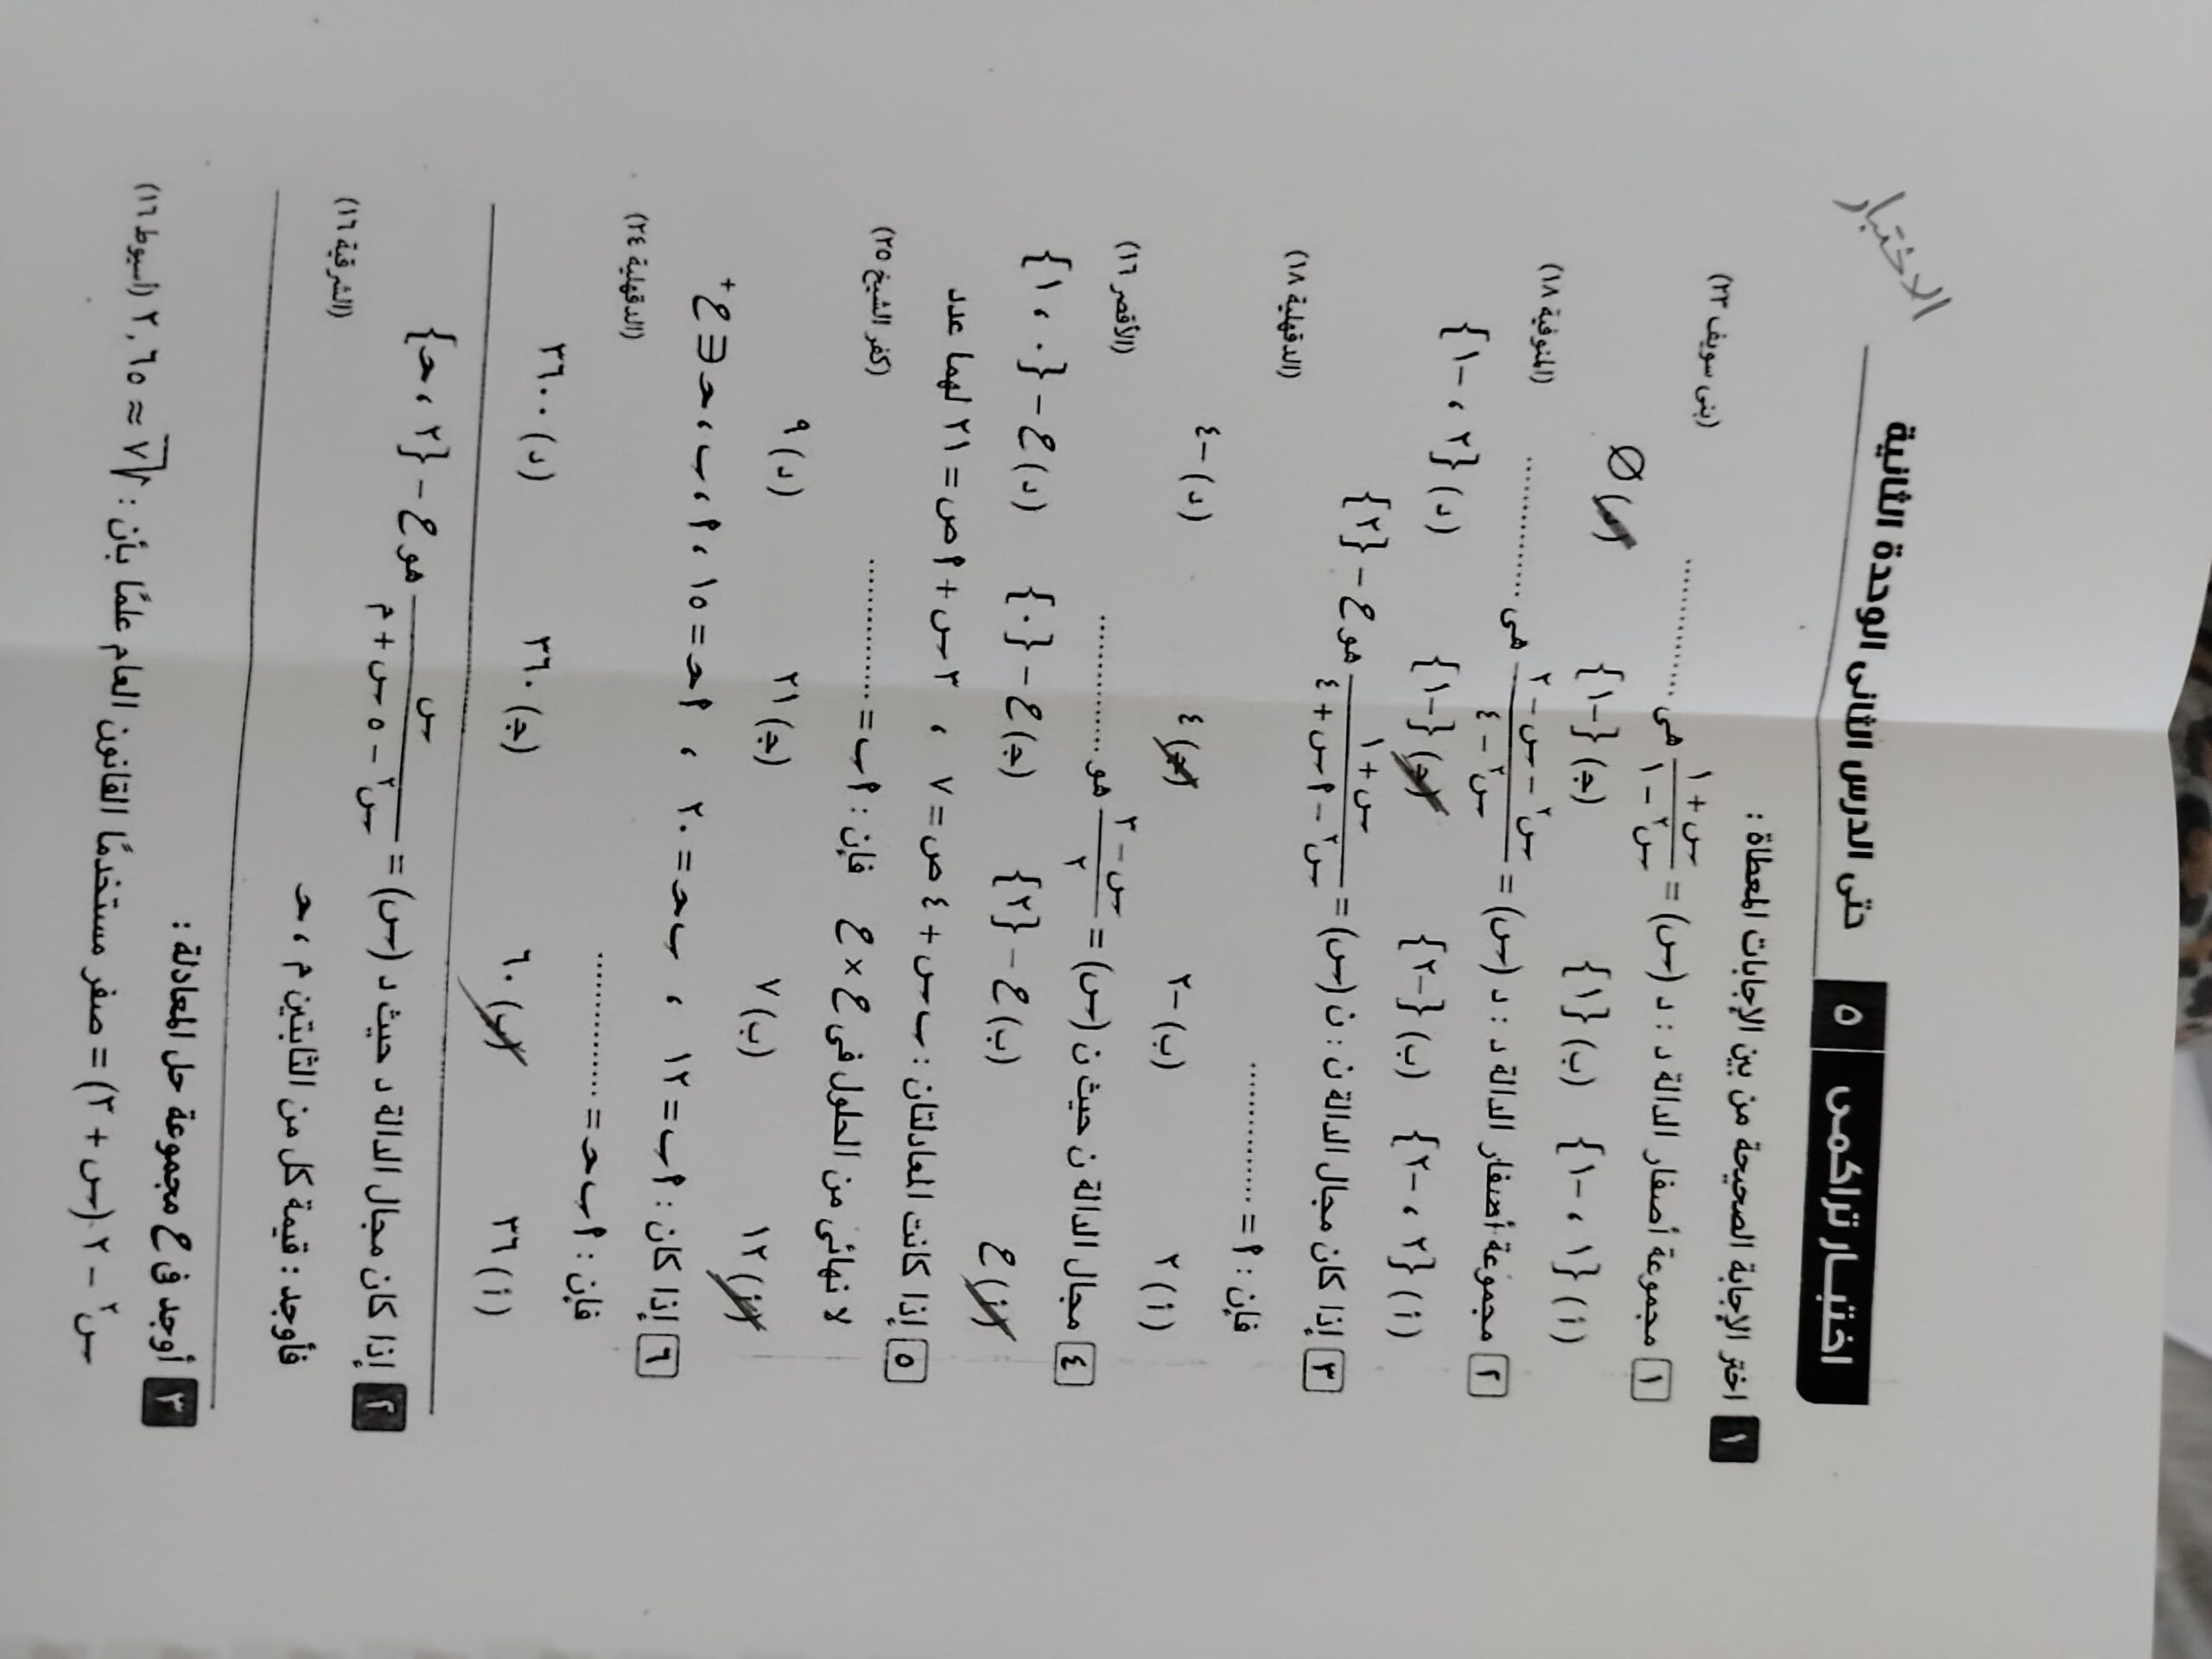 الاختبار
اختبار تراكمى ٥ حتى الدرس الثانى الوحدة الثانية
١ اختر الإجابة الصحيحة من بين الإجابات المعطاة :
١ مجموعة أصفار الدالة د : د (س) = (س + ١)/(س٢ − ١) هى ............ (بنى سويف ٢٣)
(أ) {١ ، −١} (ب) {١} (ج) {−١} (د) ∅
٢ مجموعة أصفار الدالة د : د (س) = (س٢ − س − ٢)/(س٢ − ٤) هى ............ (المنوفية ١٨)
(أ) {٢ ، −٢} (ب) {−٢} (ج) {−١} (د) {٢ ، −١}
٣ إذا كان مجال الدالة ن : ن (س) = (س + ١)/(س٢ − ٢ م س + ٤) هو ع − {٢}
فإن : ٢ = ............ (الدقهلية ١٨)
(أ) ٢ (ب) −٢ (ج) ٤ (د) −٤
٤ مجال الدالة ن حيث ن (س) = (س − ٣)/٢ هو ............ (الأقصر ١٦)
(أ) ع (ب) ع − {٢} (ج) ع − {٠} (د) ع − {٠ ، ١}
٥ إذا كانت المعادلتان : ب س + ٤ ص = ٧ ، ٣ س + ٢ ص = ٢١ لهما عدد
لا نهائى من الحلول فى ع × ع فإن : ٢ ب = ............ (كفر الشيخ ٢٥)
(أ) ١٢ (ب) ٧ (ج) ٢١ (د) ٩
٦ إذا كان : ٢ ب = ١٢ ، ب حـ = ٢٠ ، ٢ حـ = ١٥ ، ٢ ، ب ، حـ ∈ ع+
فإن : ٢ ب حـ = ............ (الدقهلية ٢٤)
(أ) ٣٦ (ب) ٦٠ (ج) ٣٦٠ (د) ٣٦٠٠
٢ إذا كان مجال الدالة د حيث د (س) = س/(س٢ − ٥ س + م) هو ع − {٢ ، حـ}
فأوجد : قيمة كل من الثابتين م ، حـ (الشرقية ١٦)
٣ أوجد فى ع مجموعة حل المعادلة :
س٢ − ٢ (س + ٣) = صفر مستخدمًا القانون العام علمًا بأن : √٧ ≈ ٢,٦٥ (أسيوط ١٦)